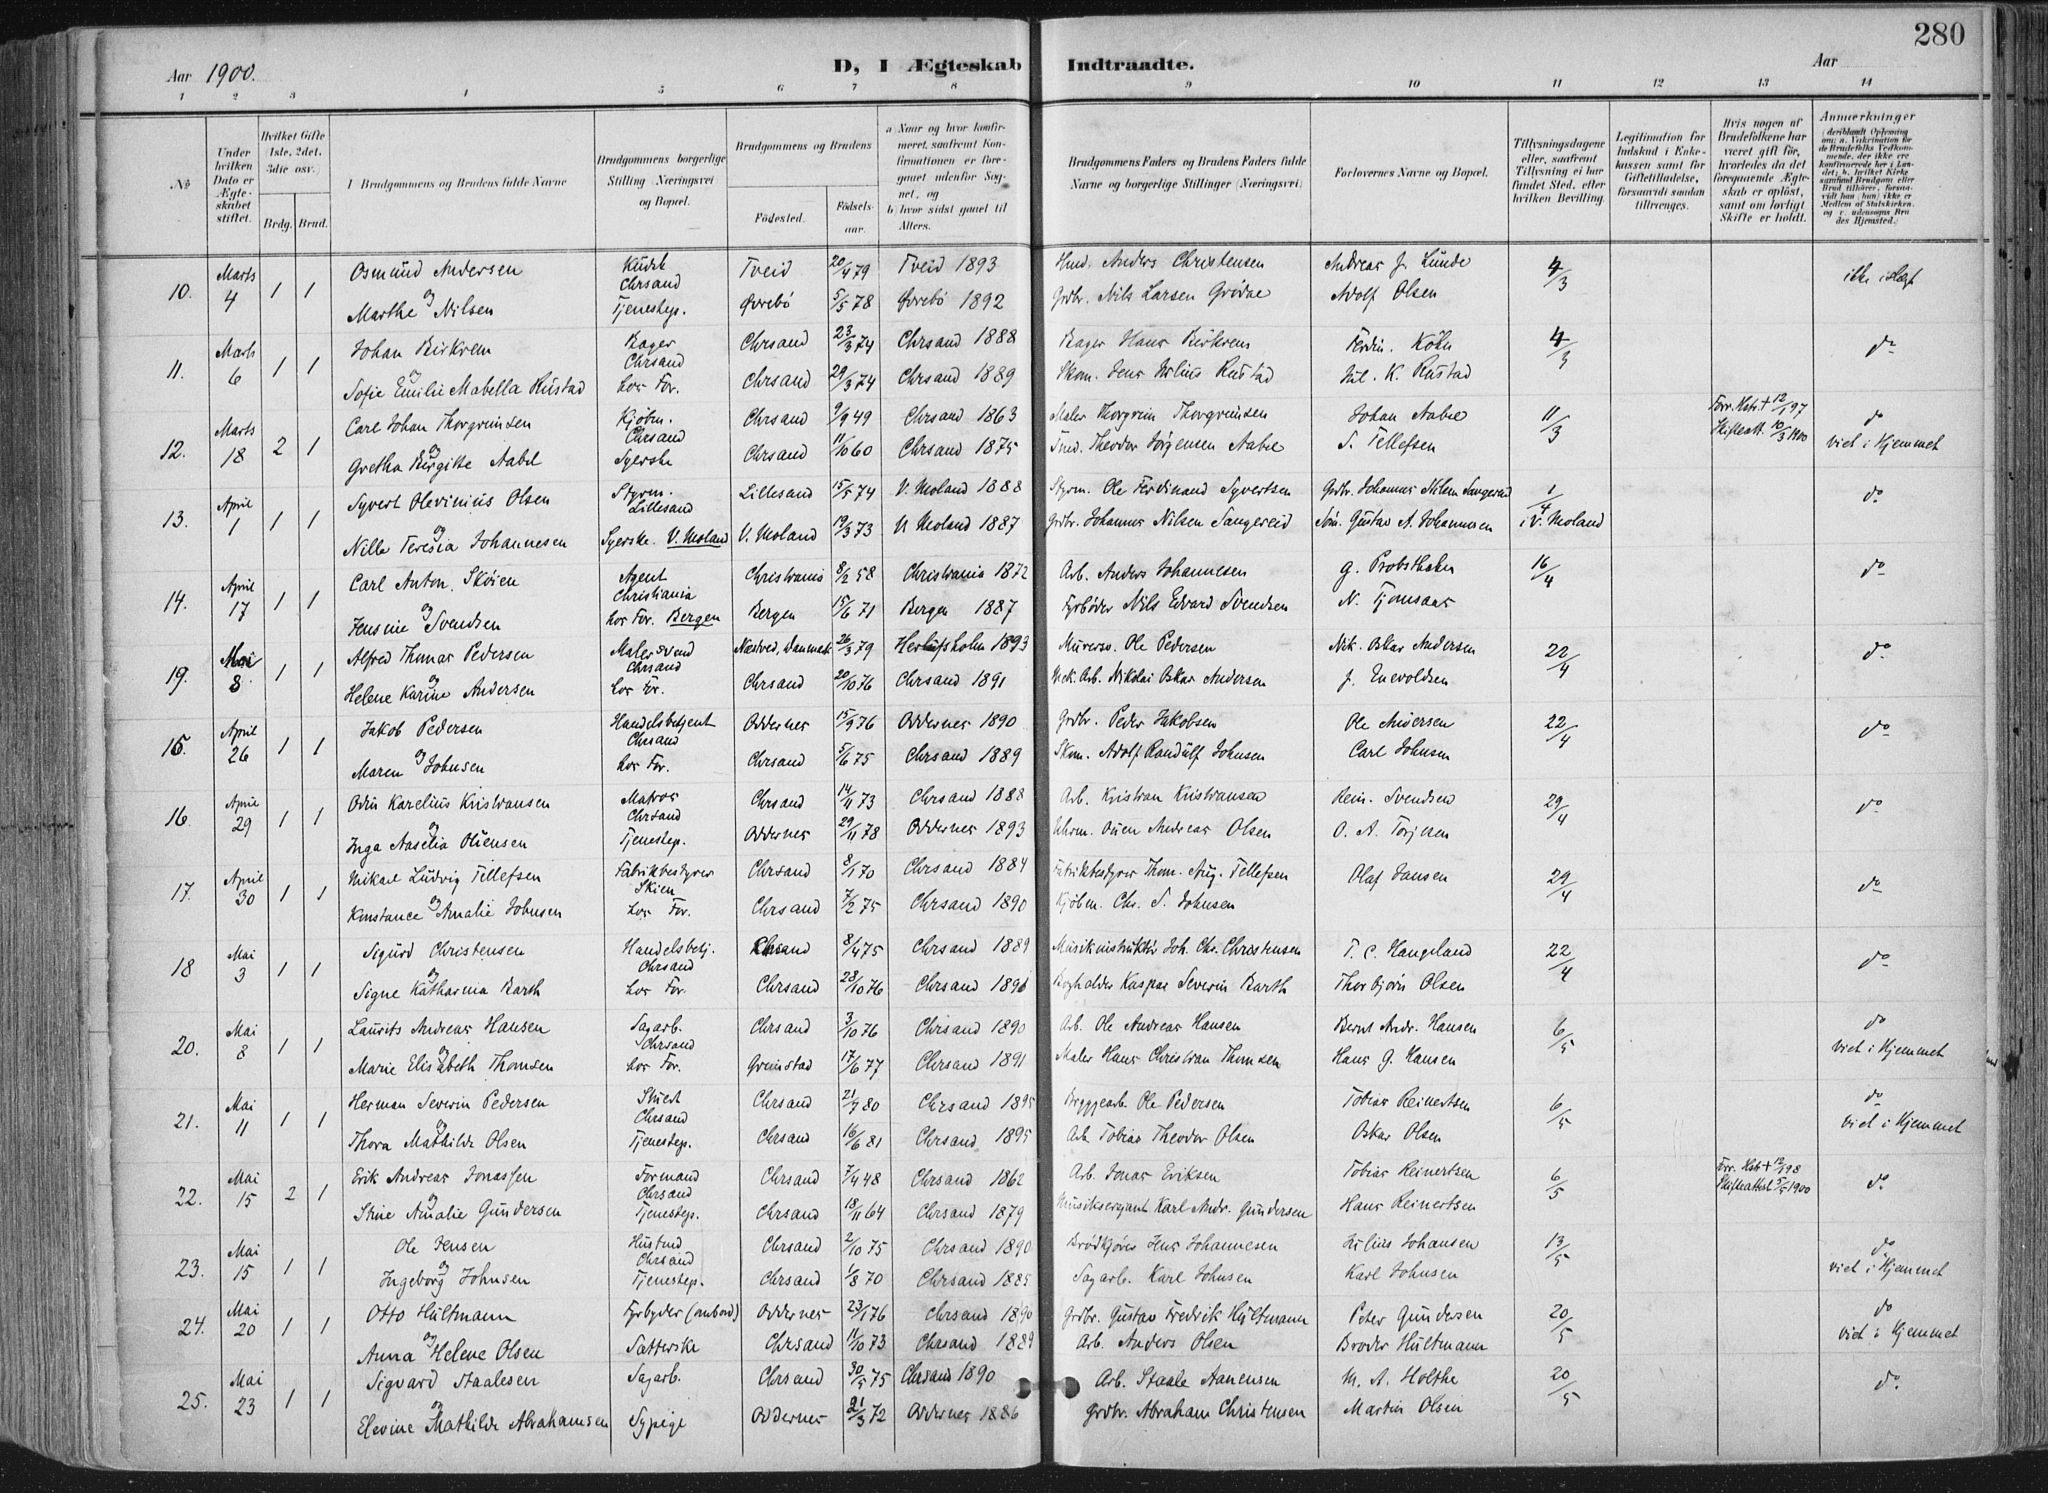 280
Aar 1900.
D, I Ægteskab Indtraadte.
Aar
1 2 3 4 5 6 7 8 9 10 11 12 13 14
No
Under hvilken Dato er Ægteskabet stiftet.
Hvilket Gifte (1ste, 2det, 3die osv.)
Brdg. Brud.
Brudgommens og Brudens fulde Navne
Brudgommens borgerlige Stilling (Næringsvei) og Bopæl.
Brudgommens og Brudens
Födested. Födselsaar.
a) Naar og hvor konfirmeret, saafremt Konfirmationen er foregaaet udenfor Sognet, og
b) hvor sidst gaaet til Alters.
Brudgommens Faders og Brudens Faders fulde Navne og borgerlige Stillinger (Næringsvei)
Forlovernes Navne og Bopæl.
Tillysningsdagene eller, saafremt Tillysning ei har fundet Sted, efter hvilken Bevilling.
Legitimation for Indskud i Enkekassen samt for Giftetilladelse, forsaavidt saadan tiltrænges.
Hvis nogen af Brudefolkene har været gift før, hvorledes da det foregaaende Ægteskab er oplöst, samt om lovligt Skifte er holdt.
Anmærkninger
10. Marts 4 1 1 Osmund Andersen Kudsk Chrsand Tveid 20/4 79 Tveid 1893 Hmd. Anders Christensen Andreas J. Lunde 4/3 ikke i Slægt
og Marthe Nilsen Tjenestep. Øvrebö 5/5 78 Øvrebö 1892 Grdbr. Nils Larsen Adolf Olsen
11. Marts 6 1 1 Johan Birkrem Bager Chrsand Chrsand 23/3 74 Chrsand 1888 Bager Hans Birkrem Ferdin. Köhn 4/3 do
og Sofie Emilie Mabella Rustad hos For. Chrsand 29/3 74 Chrsand 1889 Skom. Jens Julius Rustad Jul. K. Rustad
12. Marts 18 2 1 Carl Johan Thorgrimsen Kjöbm. Chrsand Chrsand 9/9 49 Chrsand 1863 Maler Thorgrim Thorgrimsen Johan Aabel 11/3 Forr. Hstr. + 12/1 97 Skifteatt. 10/3 1900 do viet i Hjemmet
og Gretha Birgitte Aabel Syerske Chrsand 11/10 60 Chrsand 1875 Snd. Theodor Jörgensen Aabel S. Tellefsen
13. April 1 1 1 Syvert Olevinius Olsen Styrm. Lillesand Lillesand 15/5 74 V. Moland 1888 Styrm. Ole Ferdinand Syvertsen Grdbr. Johannes Nilsen Sangereid 1/4 i V. Moland do
og Nille Teresia Johannesen Syerske. V. Moland V. Moland 19/3 73 V. Moland 1887 Grdbr. Johannes Nilsen Sangereid Söm. Gustav A. Johannesen
14. April 17 1 1 Carl Anton Sköien Agent Christiania Christiania 8/2 58 Christiania 1872 Arb. Anders Johannesen G. Probsthahn 16/4 do
og Jensine Svendsen hos For. Bergen Bergen 15/6 71 Bergen 1887 Fyrböder Nils Edvard Svendsen N. Tjomsaas
19. Mai 8 1 1 Alfred Thomas Pedersen Malersvend Chrsand Næstved, Danmark 26/3 79 Herlufsholm 1893 Murersv. Ole Pedersen Nik. Oskar Andersen 22/4 do
og Helene Karine Andersen hos For. Chrsand 20/10 76 Chrsand 1891 Mek. Arb. Nikolai Oskar Andersen J. Enevoldsen
15. April 26 1 1 Jakob Pedersen Handelsbetjent Chrsand Oddernes 15/9 76 Oddernes 1890 Grdbr. Peder Jakobsen Ole Andersen 22/4 do
og Maren Johnsen hos For. Chrsand 5/6 75 Chrsand 1889 Skom. Adolf Randulf Johnsen Carl Johnsen
16. April 29 1 1 Odin Karelius Kristiansen Matros Chrsand Chrsand 14/11 73 Chrsand 1888 Arb. Kristian Kristiansen Rein. Svendsen 29/4 do
og Inga Aaselia Olsen Tjenestep. Oddernes 29/11 78 Oddernes 1893 Uhrm. Ouen Andreas Olsen O. A. Torjesen
17. April 30 1 1 Mikael Ludvig Tellefsen Fabrikbestyrer Skien Chrsand 8/1 70 Chrsand 1884 Fabrikbestyrer Thom. Aug. Tellefsen Olaf Jansen 29/4 do
og Konstance Amalie Johnsen hos For. Chrsand 7/2 75 Chrsand 1890 Kjöbm. Chr. S. Johnsen
18 Mai 3 1 1 Sigurd Christensen Handelsbetj. Chrsand Chrsand 8/4 75 Chrsand 1889 Musikinstruktör Joh. Chr. Christensen T. C. Haugeland 22/4 do
og Signe Katharina Barth hos For. Chrsand 28/10 76 Chrsand 1891 Bogholder Kaspar Severin Barth Thorbjörn Olsen
20. Mai 8 1 1 Laurits Andreas Hansen Sagarb. Chrsand Chrsand 3/10 76 Chrsand 1890 Arb. Ole Andreas Hansen Bernt Andr. Hansen 6/5 do viet i Hjemmet
og Marie Elisabeth Thomsen hos For. Grimstad 17/6 77 Chrsand 1891 Maler Hans Christian Thomsen Hans G. Hansen
21. Mai 11 1 1 Herman Severin Pedersen Chrsand Chrsand 21/7 80 Chrsand 1895 Bryggearb. Ole Pedersen Tobias Reinertsen 6/5 do viet i Hjemmet
og Thora Mathilde Olsen Tjenestep. Chrsand 16/6 81 Chrsand 1895 Arb. Tobias Theodor Olsen Oskar Olsen
22. Mai 15 2 1 Erik Andreas Jonassen Formand Chrsand Chrsand 7/4 48 Chrsand 1862 Arb. Jonas Eriksen Tobias Reinertsen 6/5 Forr. Hstr. + 12/1 98 Skifteattest 5/5 1900 do
og Stine Amalie Gundersen Tjenestep. Chrsand 18/11 64 Chrsand 1879 Musiksergeant Karl Andr. Gundersen Hans Reinertsen
23. Mai 15 1 1 Ole Jensen Chrsand Chrsand 2/10 75 Chrsand 1890 Brödkjörer Jens Johannesen Julius Johansen 13/5 do viet i Hjemmet
og Ingeborg Johnsen Tjenestep. Chrsand 1/8 70 Chrsand 1885 Sagarb. Karl Johnsen Karl Johnsen
24. Mai 20 1 1 Otto Hultmann Fyrbyder (ombord) Oddernes 23/1 76 Chrsand 1890 Grdbr. Gustav Fredrik Hultmann Peter Gundersen 20/5 do viet i Hjemmet
og Anna Helene Olsen Chrsand 11/10 73 Chrsand 1889 Arb. Anders Olsen Broder Hultmann
25. Mai 23 1 1 Sigvard Staalesen Sagarb. Chrsand 30/5 75 Chrsand 1890 Arb. Staale Aanensen M. A. Holthe 20/5 do
og Elevine Mathilde Abrahamsen Sypige Oddernes 21/3 72 Oddernes 1886 Grdbr. Abraham Christensen Martin Olsen